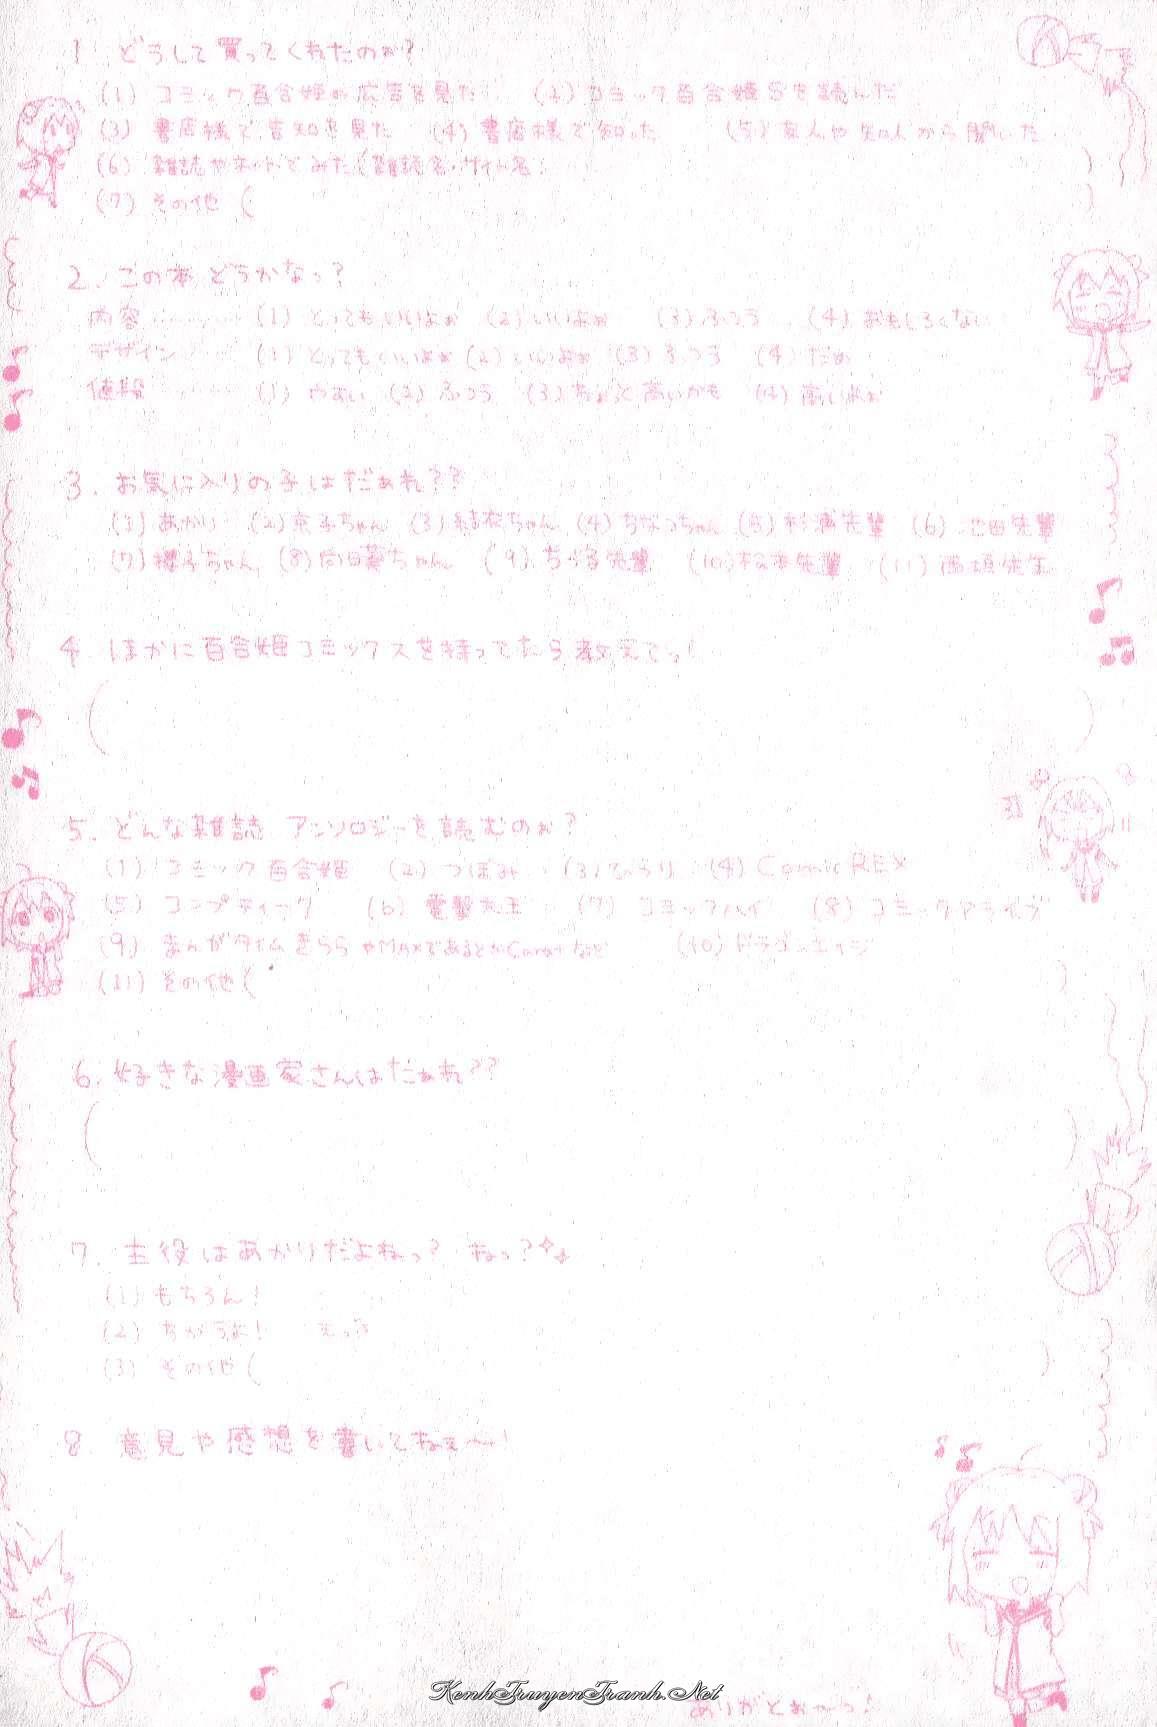 1. どうして買ってくれたのぉ?
(1) コミック百合姫の広告を見た (2) コミック百合姫Sを読んだ
(3) 書店様で告知を見た (4) 書店様で知った (5) 友人や知人から聞いた
(6) 雑誌やネットでみた(雑誌名・サイト名: )
(7) その他 ( )
2. この本どうかなっ?
内容 (1) とってもいいよぉ (2) いいよぉ (3) ふつう (4) おもしろくない
デザイン (1) とってもいいよぉ (2) いいよぉ (3) ふつう (4) だめ
値段 (1) やすい (2) ふつう (3) ちょっと高いかも (4) 高いよぉ
3. お気に入りの子はだぁれ??
(1) あかり (2) 京子ちゃん (3) 結衣ちゃん (4) ちなつちゃん (5) 杉浦先輩 (6) 池田先輩
(7) 櫻子ちゃん (8) 向日葵ちゃん (9) ちとせ先輩 (10) 松本先輩 (11) 西垣先生
4. ほかに百合姫コミックスを持ってたら教えてっ!
( )
5. どんな雑誌 アンソロジーを読むのぉ?
(1) コミック百合姫 (2) つぼみ (3) ひらり (4) Comic REX
(5) コンプティーク (6) 電撃大王 (7) コミックハイ (8) コミックアライブ
(9) まんがタイムきらら やMAXであるとかCaratなど (10) ドラゴンエイジ
(11) その他 ( )
6. 好きな漫画家さんはだぁれ??
( )
7. 主役はあかりだよねっ? ねっ?
(1) もちろん!
(2) ちがうよ!
(3) その他 ( )
8. 意見や感想を書いてねぇ〜!
ありがとぉーっ!
KenhTruyenTranh.Net